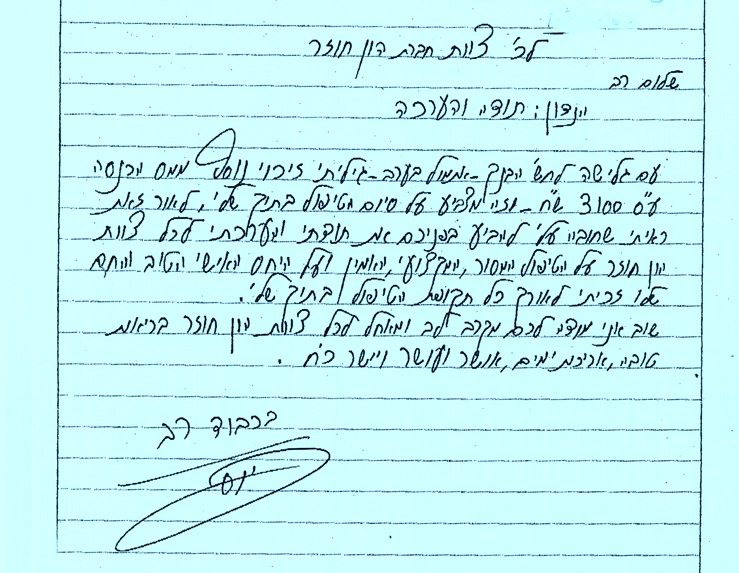 לכ' צוות חברת הון חוזר
שלום רב
הנדון: תודה והערכה
עם גלישה לחש' הבנק - אתמול בערב - גיליתי זיכוי נוסף ממס הכנסה
ע"ס 3100 ש"ח - מה מצביע על סיום הטיפול בתיק שלי, לאור זאת
ראיתי שחובה עלי להביע בפניכם את תודתי והערכתי לכל צוות
הון חוזר על הטיפול המסור, המקצועי, האמין ועל היחס האישי הטוב והחם
שלו זכיתי לאורך כל תקופת הטיפול בתיק שלי.
שוב אני מודה לכם מקרב לב ומאחל לכל צוות הון חוזר בריאות
טובה, אריכות ימים, אושר ועושר ויישר כח.
בכבוד רב